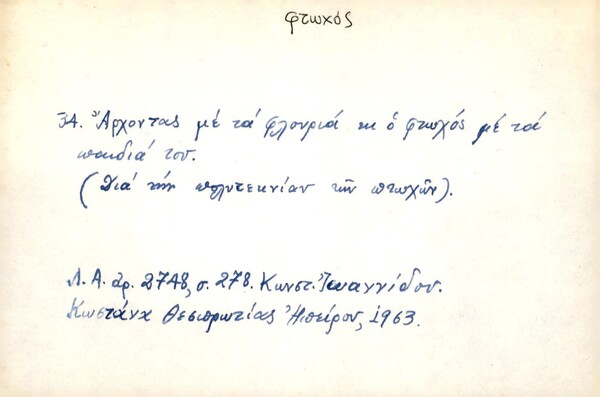 φτωχός
34. Ἄρχοντας μέ τά φλουριά κι ὁ φτωχός μέ τά
παιδιά του.
(Διά τήν πολυτεκνίαν τῶν πτωχῶν).
Λ. Α. ἀρ. 2748, σ. 278. Κωνστ. Ἰωαννίδου.
Κωστάνα Θεσπρωτίας Ἠπείρου, 1963.